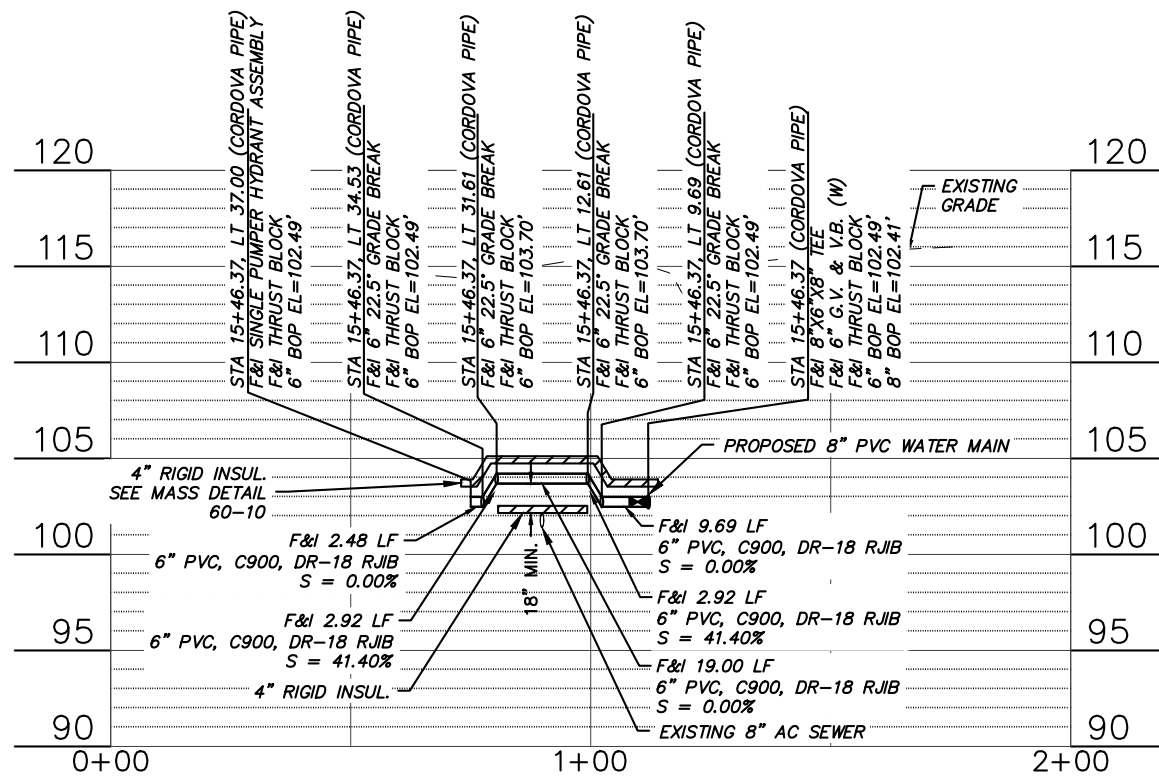 STA 15+46.37, LT 37.00 (CORDOVA PIPE)
F&I SINGLE PUMPER HYDRANT ASSEMBLY
F&I THRUST BLOCK
6" BOP EL=102.49'
STA 15+46.37, LT 34.53 (CORDOVA PIPE)
F&I 6" 22.5° GRADE BREAK
F&I THRUST BLOCK
6" BOP EL=102.49'
STA 15+46.37, LT 31.61 (CORDOVA PIPE)
F&I 6" 22.5° GRADE BREAK
F&I THRUST BLOCK
6" BOP EL=103.70'
STA 15+46.37, LT 12.61 (CORDOVA PIPE)
F&I 6" 22.5° GRADE BREAK
F&I THRUST BLOCK
6" BOP EL=103.70'
STA 15+46.37, LT 9.69 (CORDOVA PIPE)
F&I 6" 22.5° GRADE BREAK
F&I THRUST BLOCK
6" BOP EL=102.49'
STA 15+46.37 (CORDOVA PIPE)
F&I 8"X6"X8" TEE
F&I 6" G.V. & V.B. (W)
F&I THRUST BLOCK
6" BOP EL=102.49'
8" BOP EL=102.41'
120
115
110
105
100
95
90
120
115
110
105
100
95
90
EXISTING
GRADE
PROPOSED 8" PVC WATER MAIN
4" RIGID INSUL.
SEE MASS DETAIL
60-10
F&I 2.48 LF
6" PVC, C900, DR-18 RJIB
S = 0.00%
F&I 2.92 LF
6" PVC, C900, DR-18 RJIB
S = 41.40%
4" RIGID INSUL.
18" MIN.
F&I 9.69 LF
6" PVC, C900, DR-18 RJIB
S = 0.00%
F&I 2.92 LF
6" PVC, C900, DR-18 RJIB
S = 41.40%
F&I 19.00 LF
6" PVC, C900, DR-18 RJIB
S = 0.00%
EXISTING 8" AC SEWER
0+00
1+00
2+00